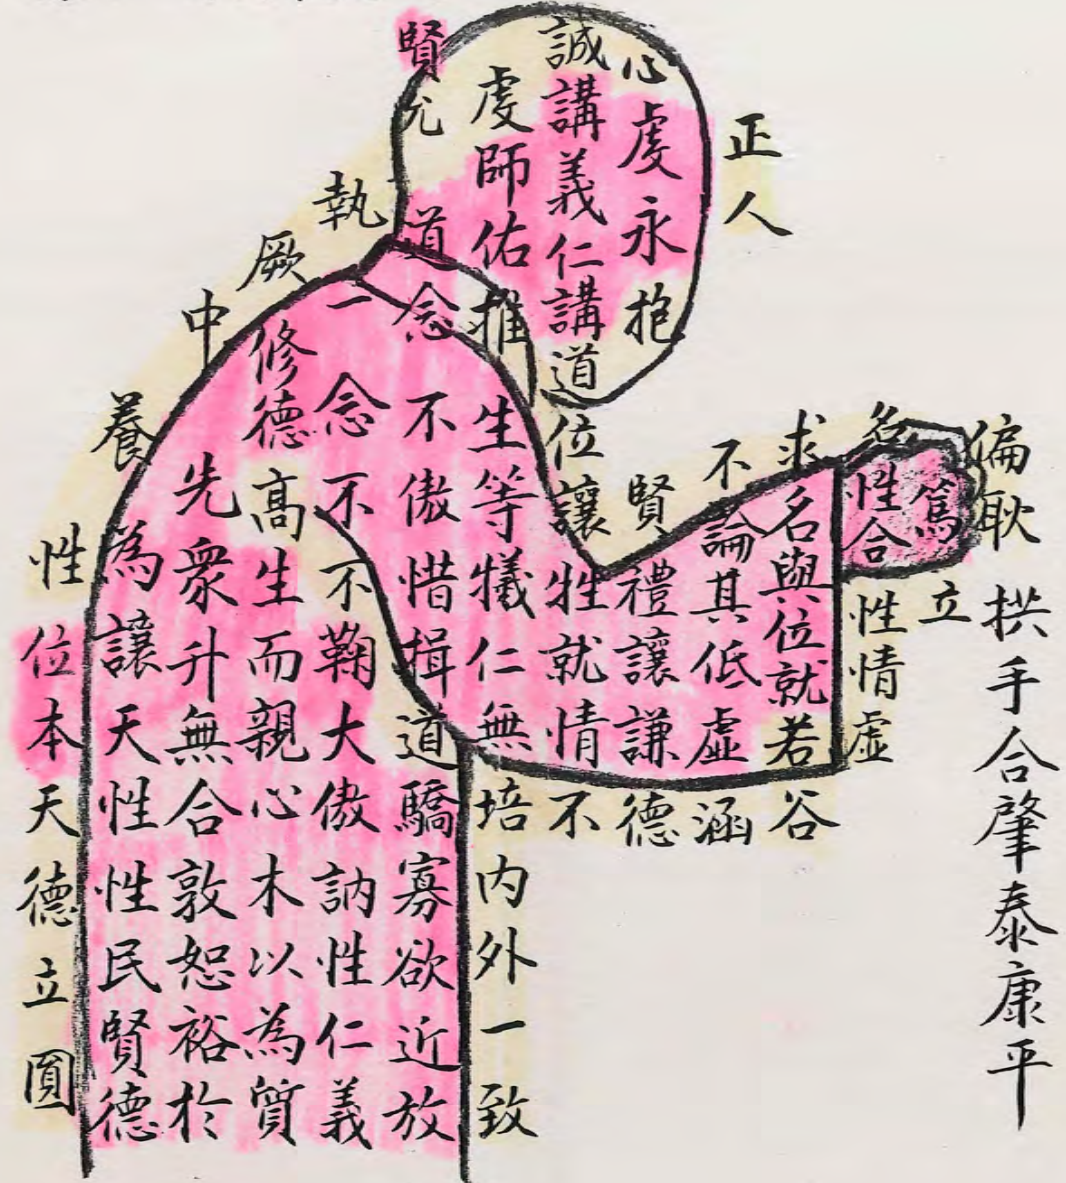 偏耿拱手合肇泰康平
篤立
名性合性情虛
求名與位就若谷
正人
不論其低虛涵
心虔永抱
賢禮讓謙德
誠講義仁講道位讓牲就情不
虔師佑推生等犧仁無培内外一致
賢允道念不傲惜揖道驕寡欲近放
執一念不不鞠大傲訥性仁義
厥修德高生而親心木以為質
中先衆升無合敦恕裕於
養為讓天性性民賢德
性位本天德立圓